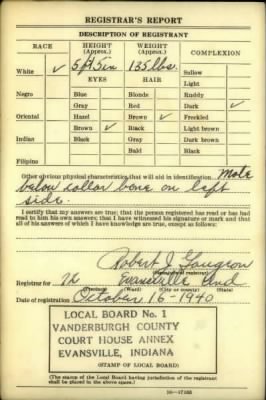 REGISTRAR'S REPORT
DESCRIPTION OF REGISTRANT
RACE HEIGHT (Approx.) WEIGHT (Approx.) COMPLEXION
White ✓ 5 ft 5 in 135 lbs. Sallow
EYES HAIR Light
Negro Blue Blonde Ruddy
Gray Red Dark ✓
Oriental Hazel Brown ✓ Freckled
Brown ✓ Black Light brown
Indian Black Gray Dark brown
Bald Black
Filipino
Other obvious physical characteristics that will aid in identification Mole
below collar bone on left
side.
I certify that my answers are true; that the person registered has read or has had
read to him his own answers; that I have witnessed his signature or mark and that
all of his answers of which I have knowledge are true, except as follows:
Robert J.
(Signature of registrar)
Registrar for Evansville Ind
(Precinct) (Ward) (City or county) (State)
Date of registration October 16-1940
LOCAL BOARD No. 1
VANDERBURGH COUNTY
COURT HOUSE ANNEX
EVANSVILLE, INDIANA
(STAMP OF LOCAL BOARD)
(The stamp of the Local Board having jurisdiction of the registrant
shall be placed in the above space.)